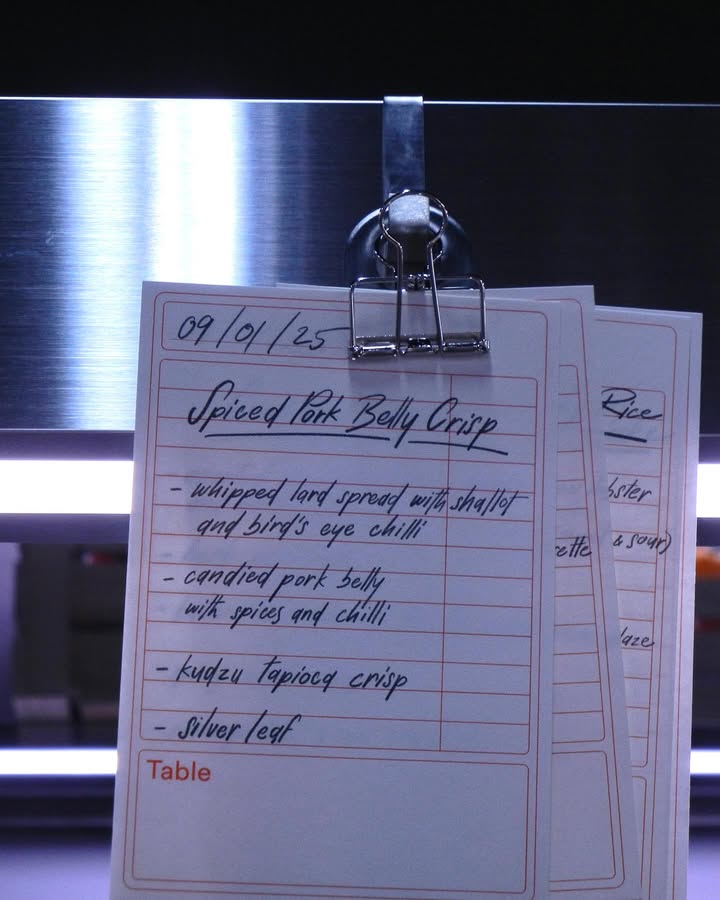 09/01/25
Spiced Pork Belly Crisp
- whipped lard spread with shallot
and bird's eye chilli
- candied pork belly
with spices and chilli
- kudzu tapioca crisp
- silver leaf
Table
Rice
& sour)